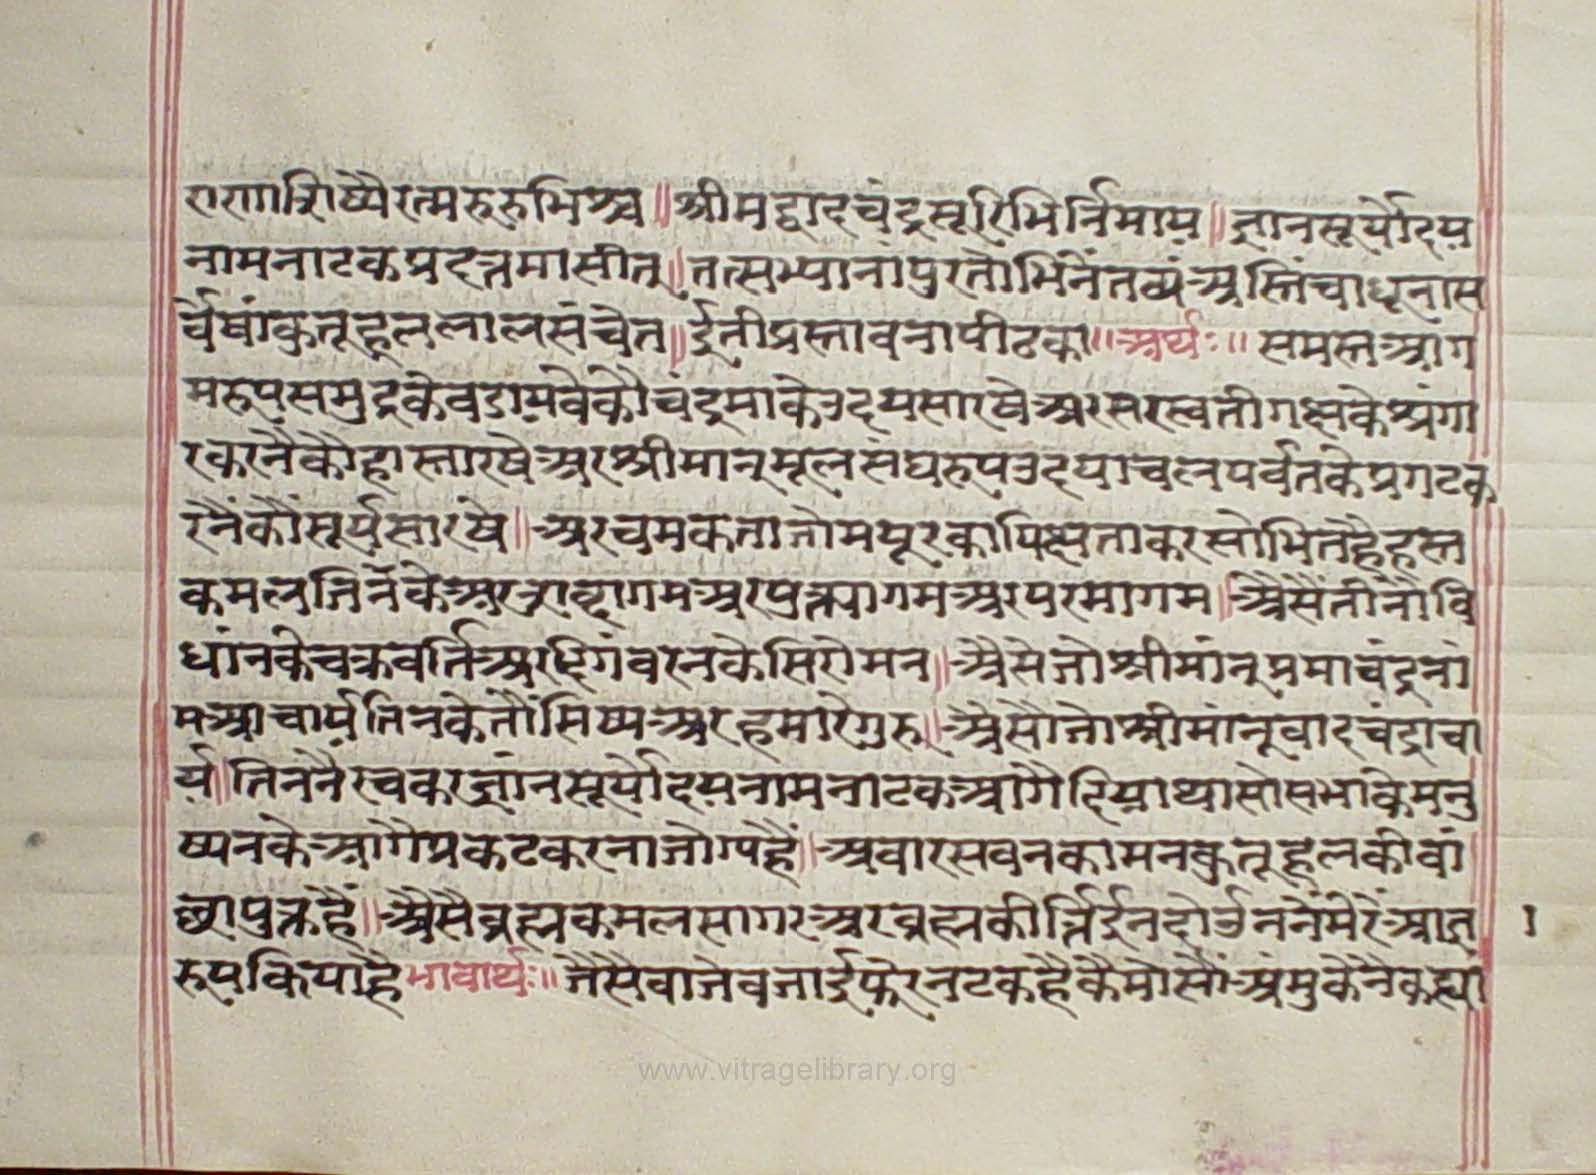 राणाशिष्यैरत्मरुरुभिश्च॥ श्रीमद्वादचंद्रसूरिभिर्निमाय॥ ज्ञानसूर्योदय
नामनाटकप्रदत्तमासीत्॥ तत्सभ्यानांपुरतोभिनेतव्यं अस्तिंचाधूनास
र्वेषांकुतूहललालसंचेत॥ ईतीप्रस्तावनापीठका॥ अर्थः॥ समस्त आग
मरुपसमुद्रकेवडायवेकौचंद्रमाकेउदयसारषे अरसरस्वतीगछके श्रंगा
रकरनैकौहास्तारषे अर श्रीमानूमूलसंघरुपउदयाचलपर्वतकेप्रगटक
रनैंकौंसूर्यसारषे॥ अरचमकताजोमयूरकापिछताकरसोभितहैहस्त
कमलजिनके अर आत्मागम अरपुन्यागम अरपरमागम॥ अैसैंतीनौंवि
धांनकेचक्रवर्ति अरदिगंवरनकेसिरोमन॥ अैसेजो श्रीमांनूप्रभाचंद्रनां
म आचार्य तिनकेतौंसिष्य अर हमारेगुरु॥ अैसौजो श्रीमांनूवादचंद्राचा
र्य॥ तिननैरचकरज्ञांनसूर्योदयनामनाटक आगैदियाथासोसभाकेमनु
ष्यनके आगैप्रकटकरनाजोग्यहै॥ अवारसवनकामनकुतूहलकीवां
छापुक्तहै॥ अैसैव्रह्मकमलसागर अरव्रह्मकीर्त्तिईनदोउननैंमेरैं आज्ञा
रुपकियाहै भावार्थः॥ जैसैवाजेवजाईफेरनटकहैकैमोसौं अंमुकेनैकह्यां
www.vitragelibrary.org